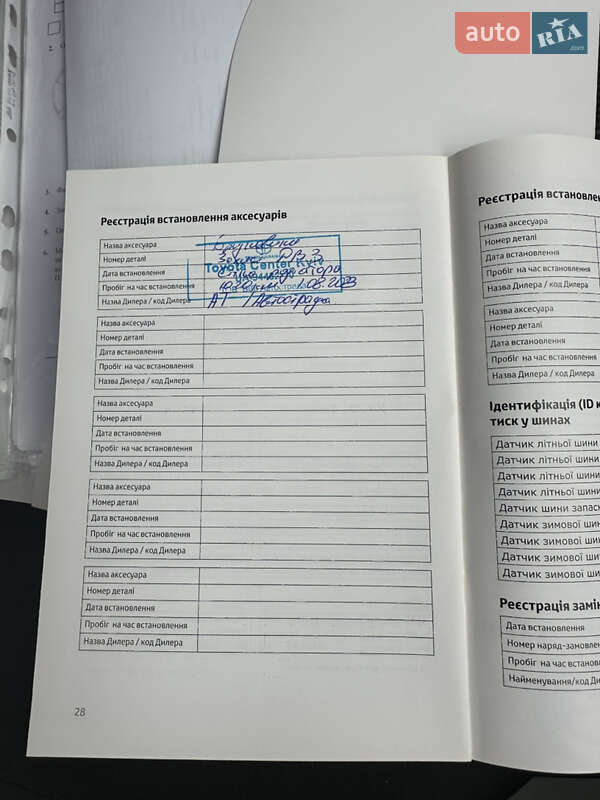 auto RIA .com
Реєстрація встановлення аксесуарів
Назва аксесуара
Номер деталі
Дата встановлення
Пробіг на час встановлення
Назва Дилера / код Дилера
Toyota Center Kyiv
1.08.2023
Назва аксесуара
Номер деталі
Дата встановлення
Пробіг на час встановлення
Назва Дилера / код Дилера
Назва аксесуара
Номер деталі
Дата встановлення
Пробіг на час встановлення
Назва Дилера / код Дилера
Назва аксесуара
Номер деталі
Дата встановлення
Пробіг на час встановлення
Назва Дилера / код Дилера
Назва аксесуара
Номер деталі
Дата встановлення
Пробіг на час встановлення
Назва Дилера / код Дилера
28
Реєстрація встановлен
Назва аксесуара
Номер деталі
Дата встановлення
Пробіг на час встановлення
Назва Дилера / код Дилера
Назва аксесуара
Номер деталі
Дата встановлення
Пробіг на час встановлення
Назва Дилера / код Дилера
Ідентифікація (ID к
тиск у шинах
Датчик літньої шини
Датчик літньої шини
Датчик літньої шини
Датчик літньої шини
Датчик шини запасн
Датчик зимової шин
Датчик зимової шин
Датчик зимової ши
Датчик зимової ши
Реєстрація замін
Дата встановлення
Номер наряд-замовлен
Пробіг на час встановл
Найменування/код Ди